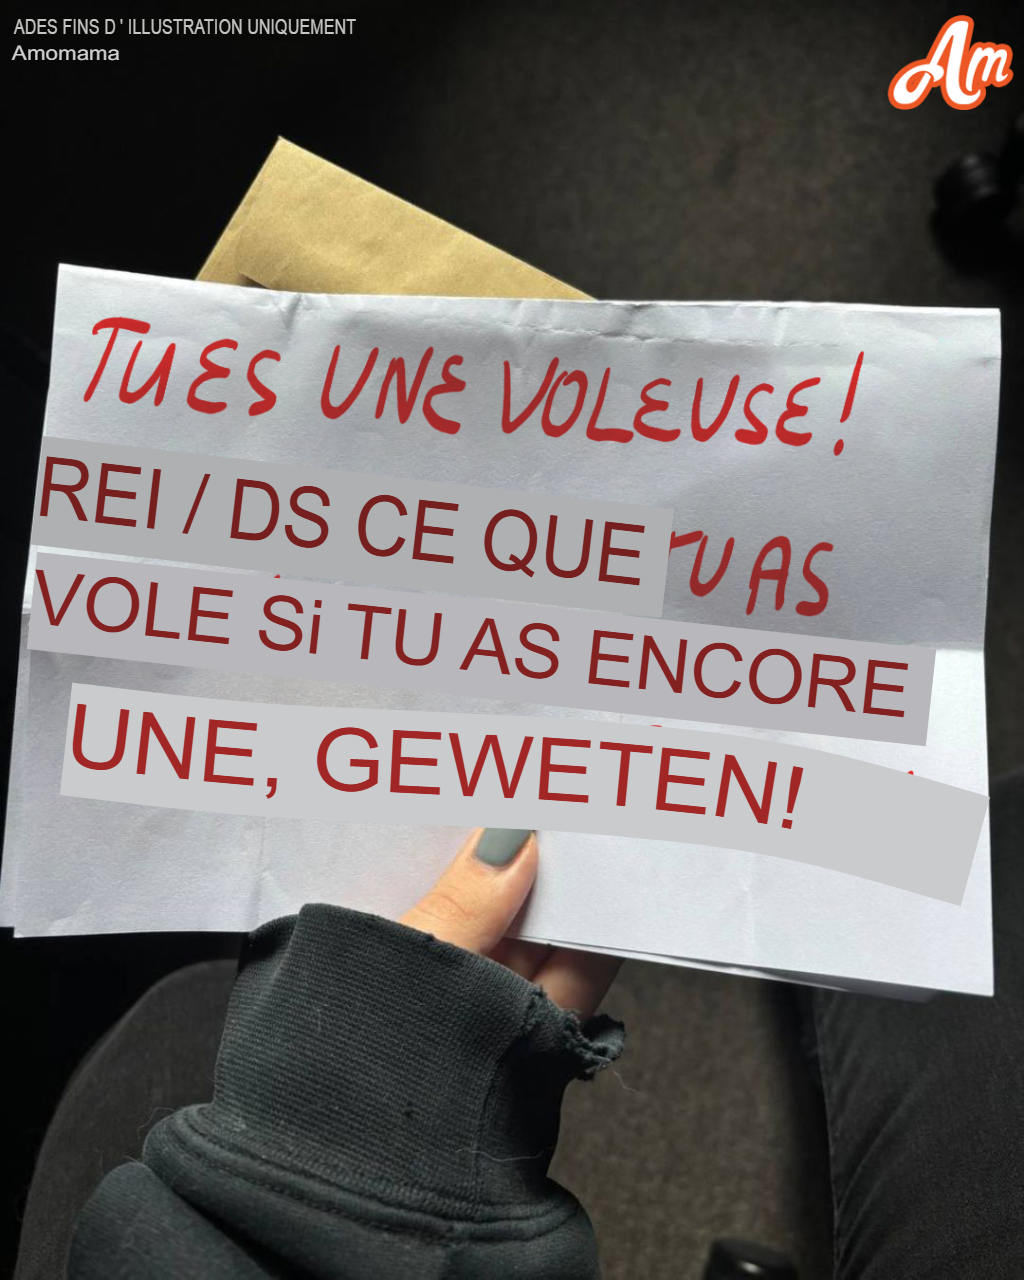 ADES FINS D ' ILLUSTRATION UNIQUEMENT
Amomama
Am
TU ES UNE VOLEUSE!
REI / DS CE QUE TU AS
VOLE Si TU AS ENCORE
UNE, GEWETEN!